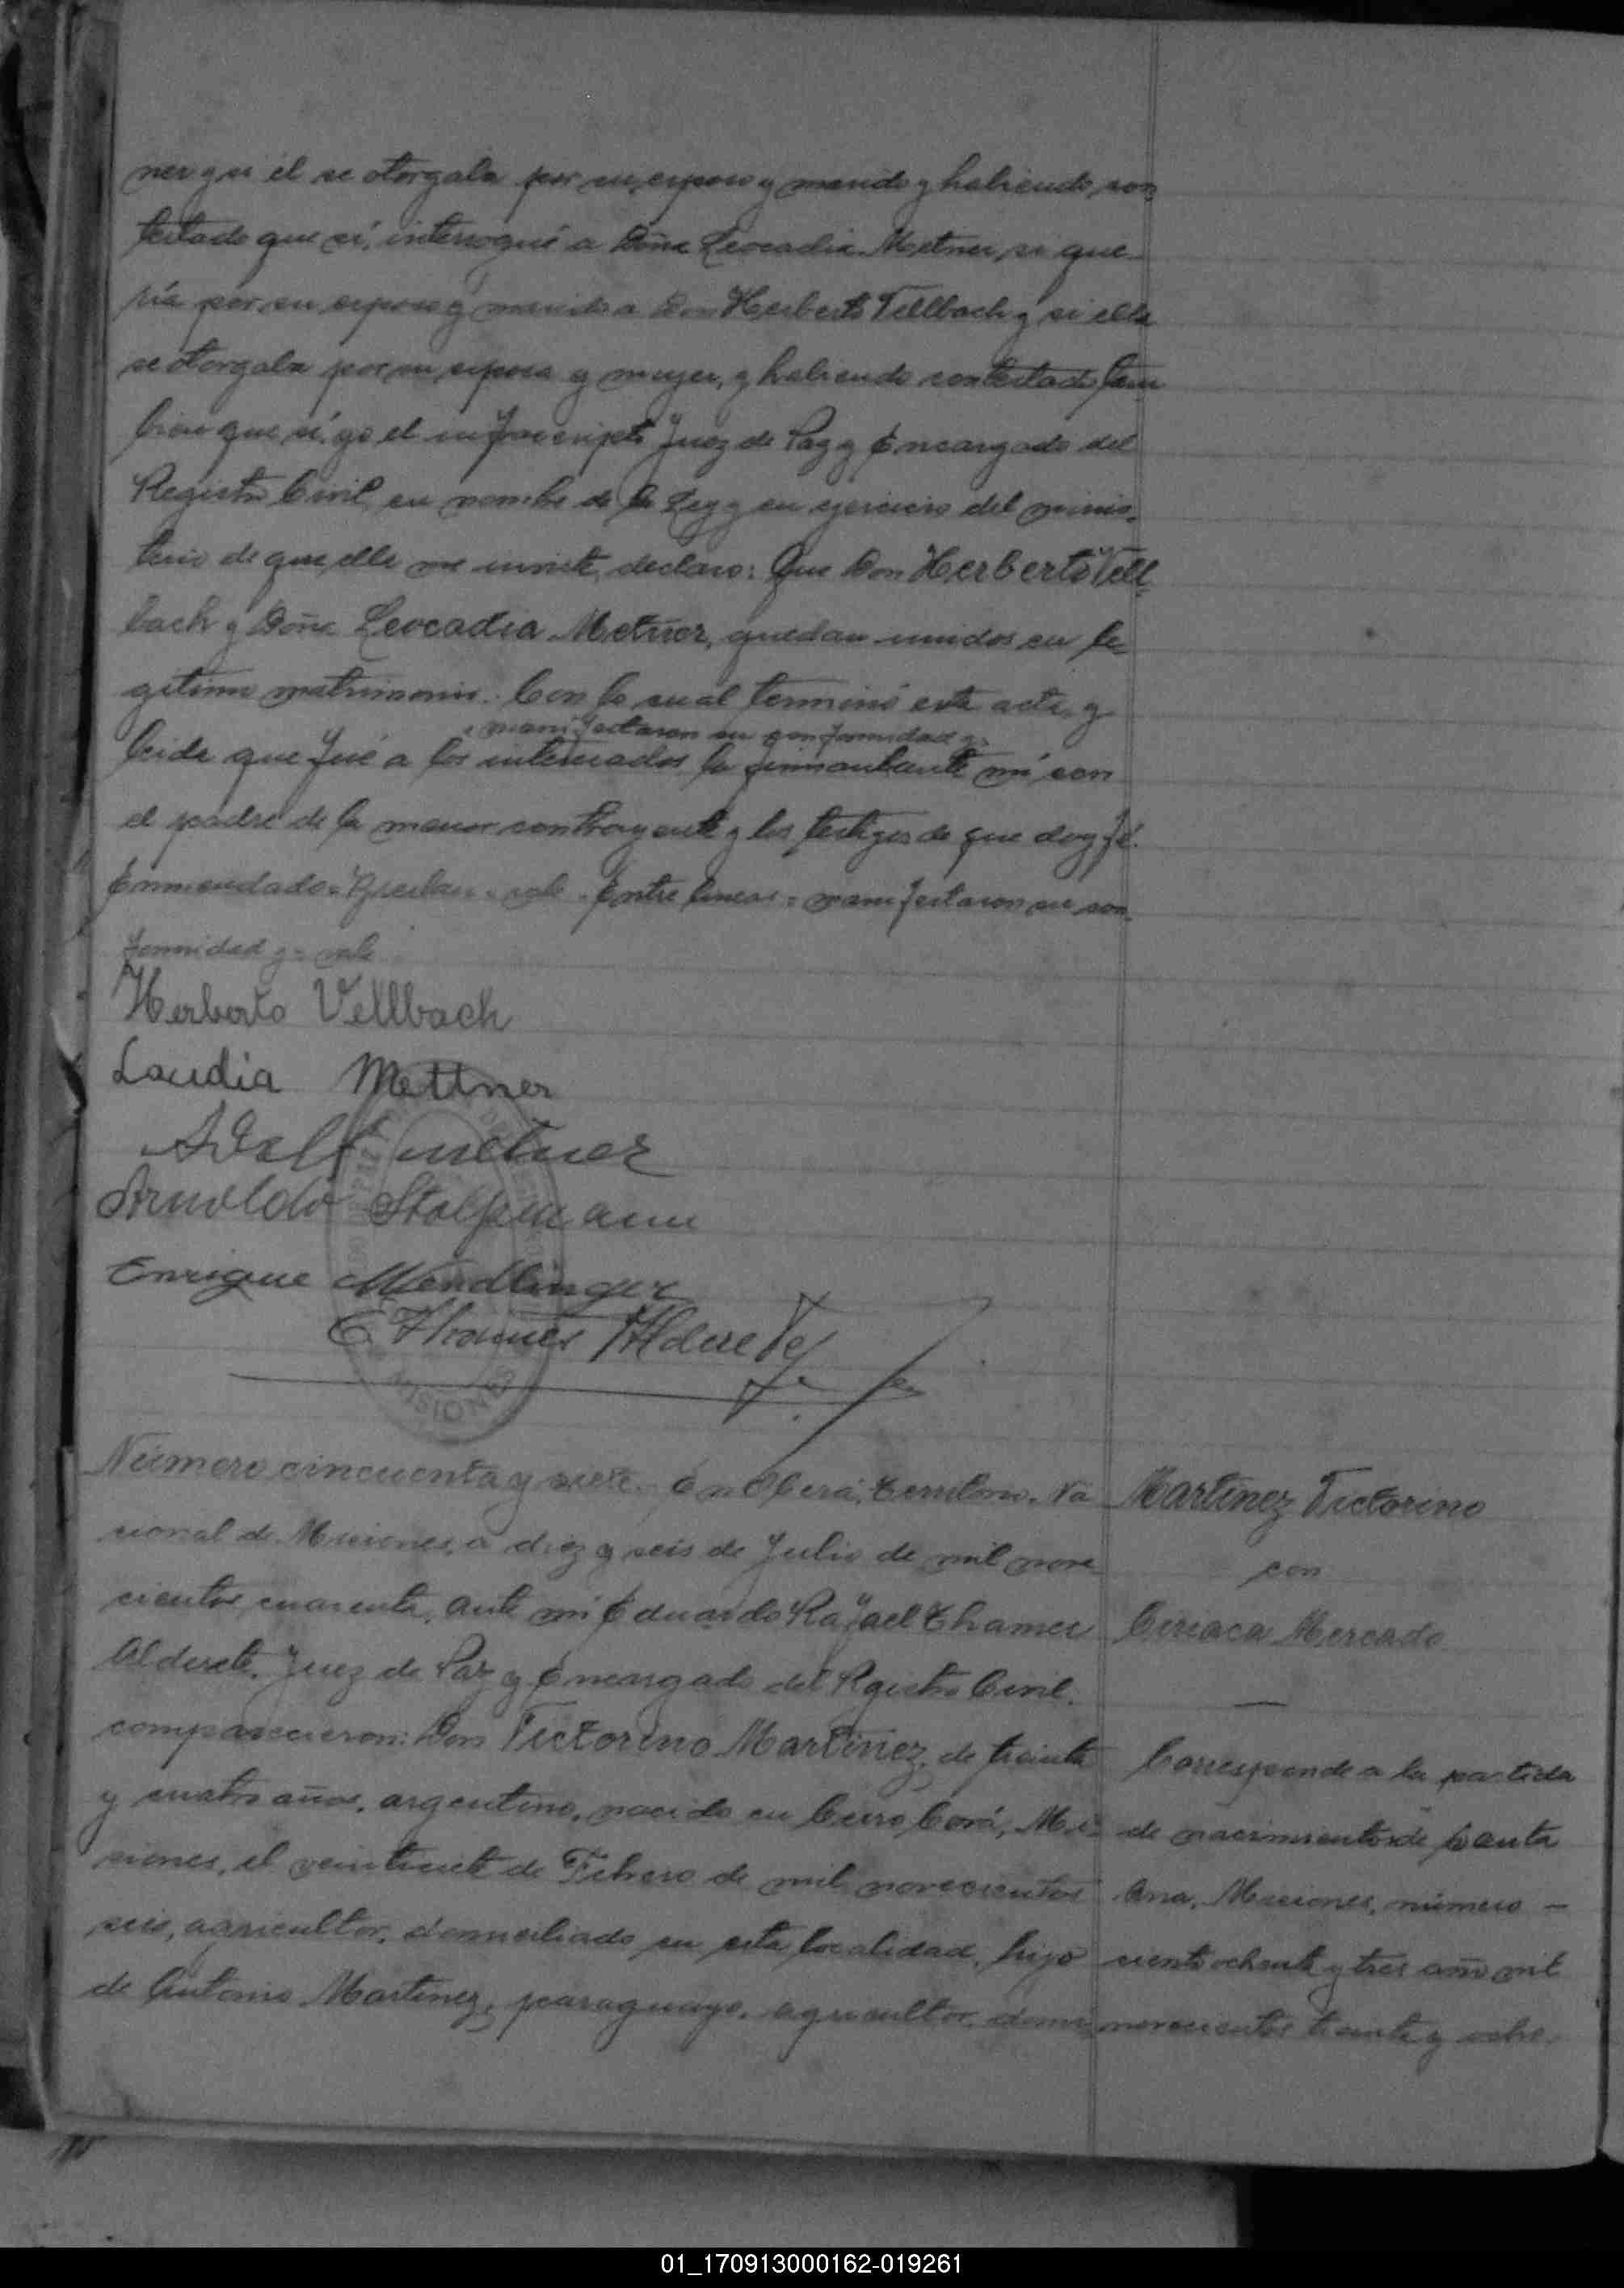 ner y si él se otorgaba por su esposo y marido y habiendo con
testado que sí, interrogué a Doña Leocadia Metner, si que
ría por su esposo y marido a Don Herberto Vellbach y si ella
se otorgaba por su esposa y mujer, y habiendo contestado tam
bien que sí, yo el infrascripto Juez de Paz y Encargado del
Registro Civil, en nombre de la Ley y en ejercicio del minis-
terio de que ella me inviste, declaro: Que Don Herberto Vell-
bach y Doña Leocadia Metner, quedan unidos en le-
gítimo matrimonio. Con lo cual terminó esta acta, y
manifestaron su conformidad y
leida que fué a los interesados, la firman ante mí con
el padre de la menor contrayente y los testigos de que doy fé.
Enmendado= vale. Entre lineas= manifestaron su con-
formidad y= vale
Herberto Vellbach
Laudia Mettner
Adolf Metner
Arnoldo Stolpmann
Enrique Mendlinger
E. Thames Alderete
MISIONES
Número cincuenta y siete. En Oberá, Territorio Na
cional de Misiones, a diez y seis de Julio de mil nove
cientos cuarenta, ante mi Eduardo Rafael Thames
Alderete, Juez de Paz y Encargado del Rgistro Civil,
comparecieron: Don Victorino Martínez, de treinta
y cuatro años, argentino, nacido en Cerro Corá, Mi-
siones, el veintisiete de Febrero de mil novecientos
seis, agricultor, domiciliado en esta localidad, hijo
de Antonio Martínez, paraguayo, agricultor, domi
Martínez Victorino
con
Ciriaca Mercado
Corresponde a la partida
de nacimiento de Santa
Ana, Misiones, número -
ciento ochenta y tres año mil
novecientos treinta y ocho.
01_170913000162-019261